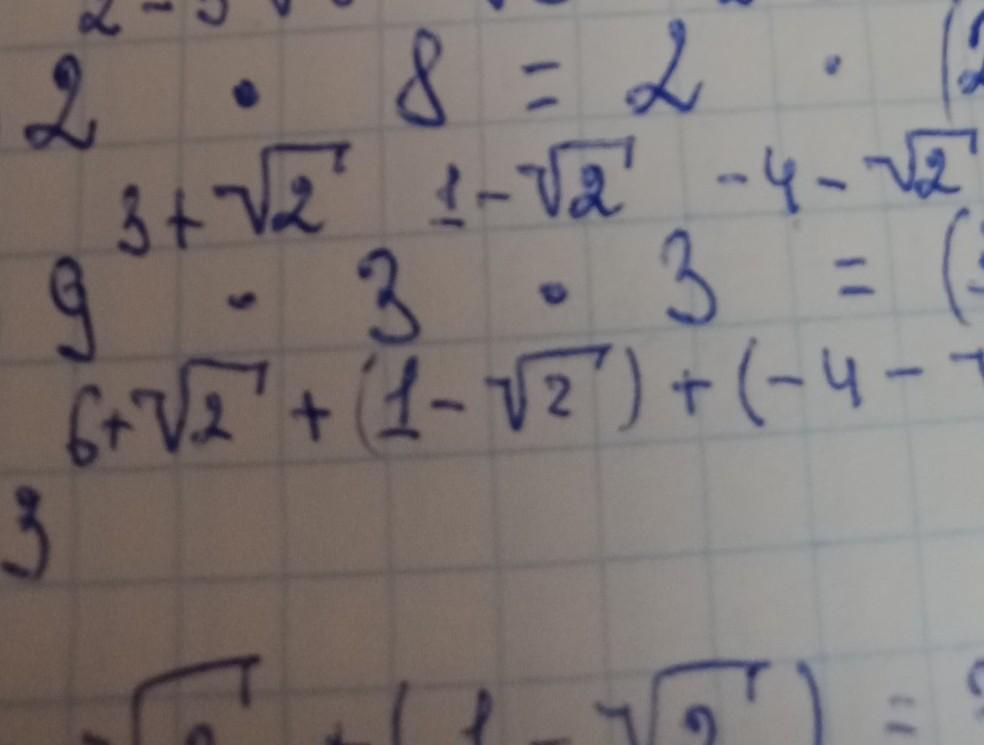 2 · 8 = 2 · (2
3+√2 1-√2 -4-√2
9 · 3 · 3 = (
6+√2 + (1-√2) + (-4-
3
√2 + (1-√2) =